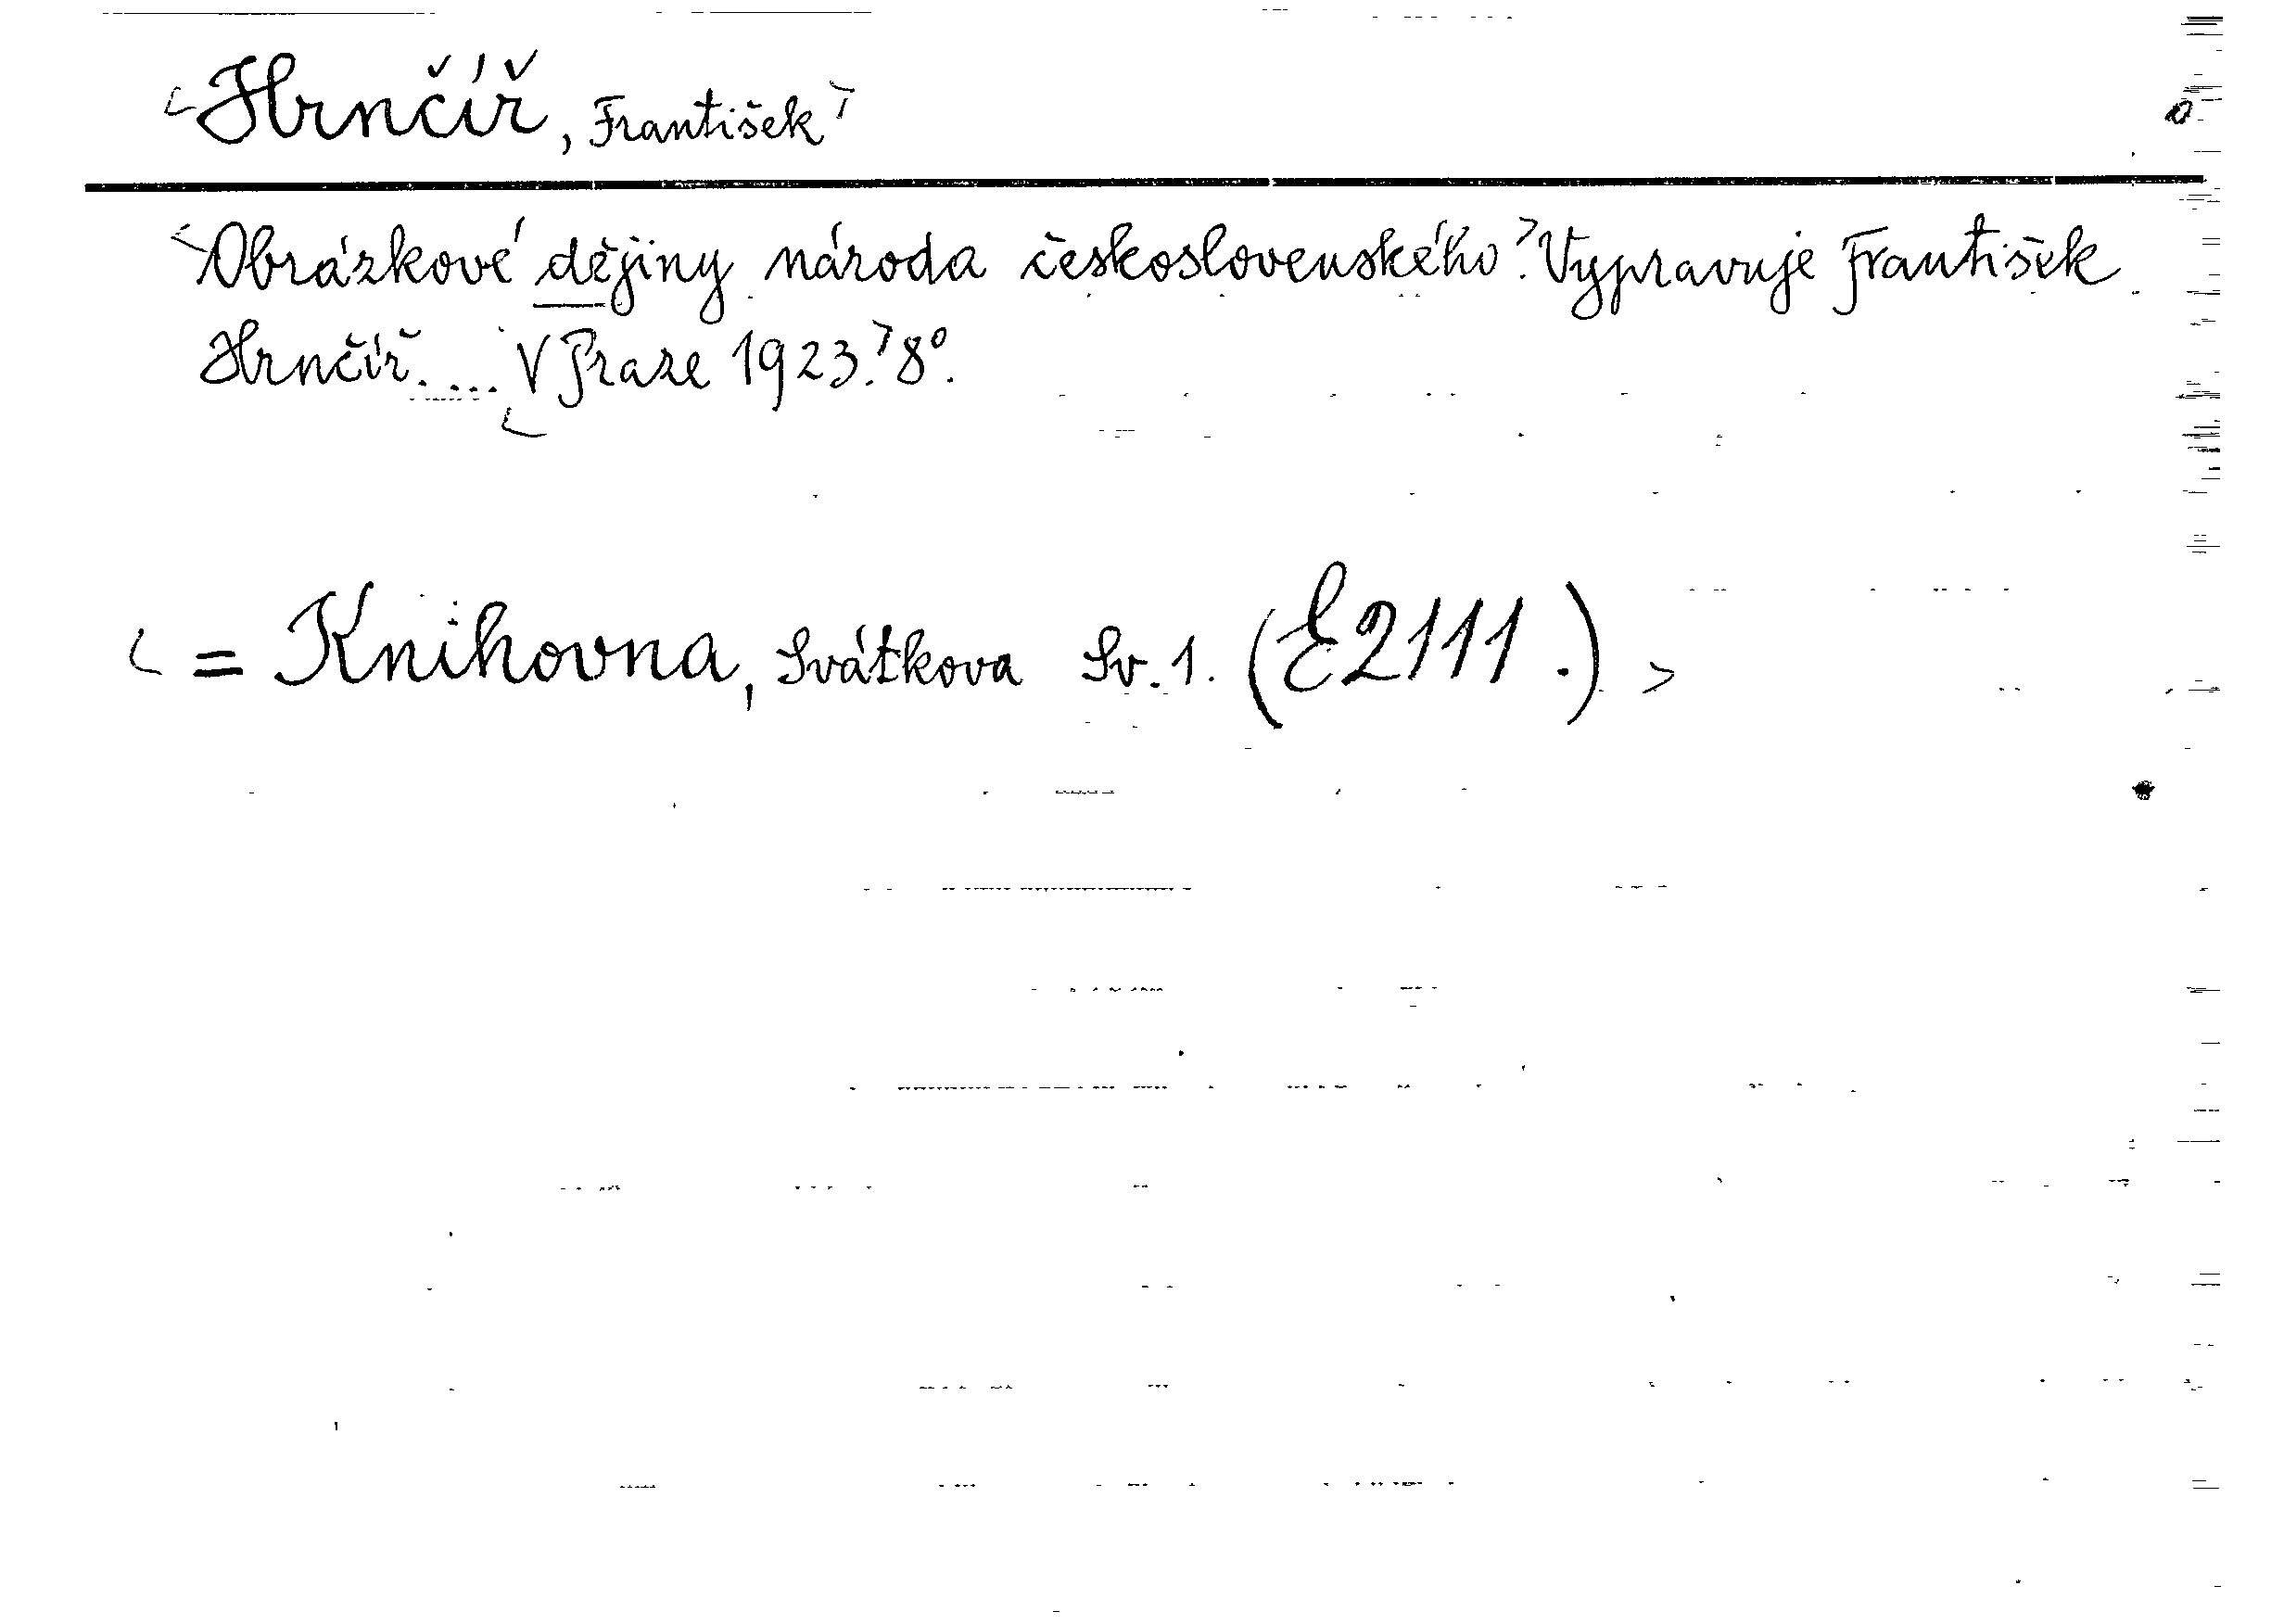 <Hrnčíř, František>
<Obrázkové dějiny národa československého.> Vypravuje František
Hrnčíř. ... <V Praze 1923.> 8°.
<= Knihovna, Svátkova Sv. 1. (E2111.)>